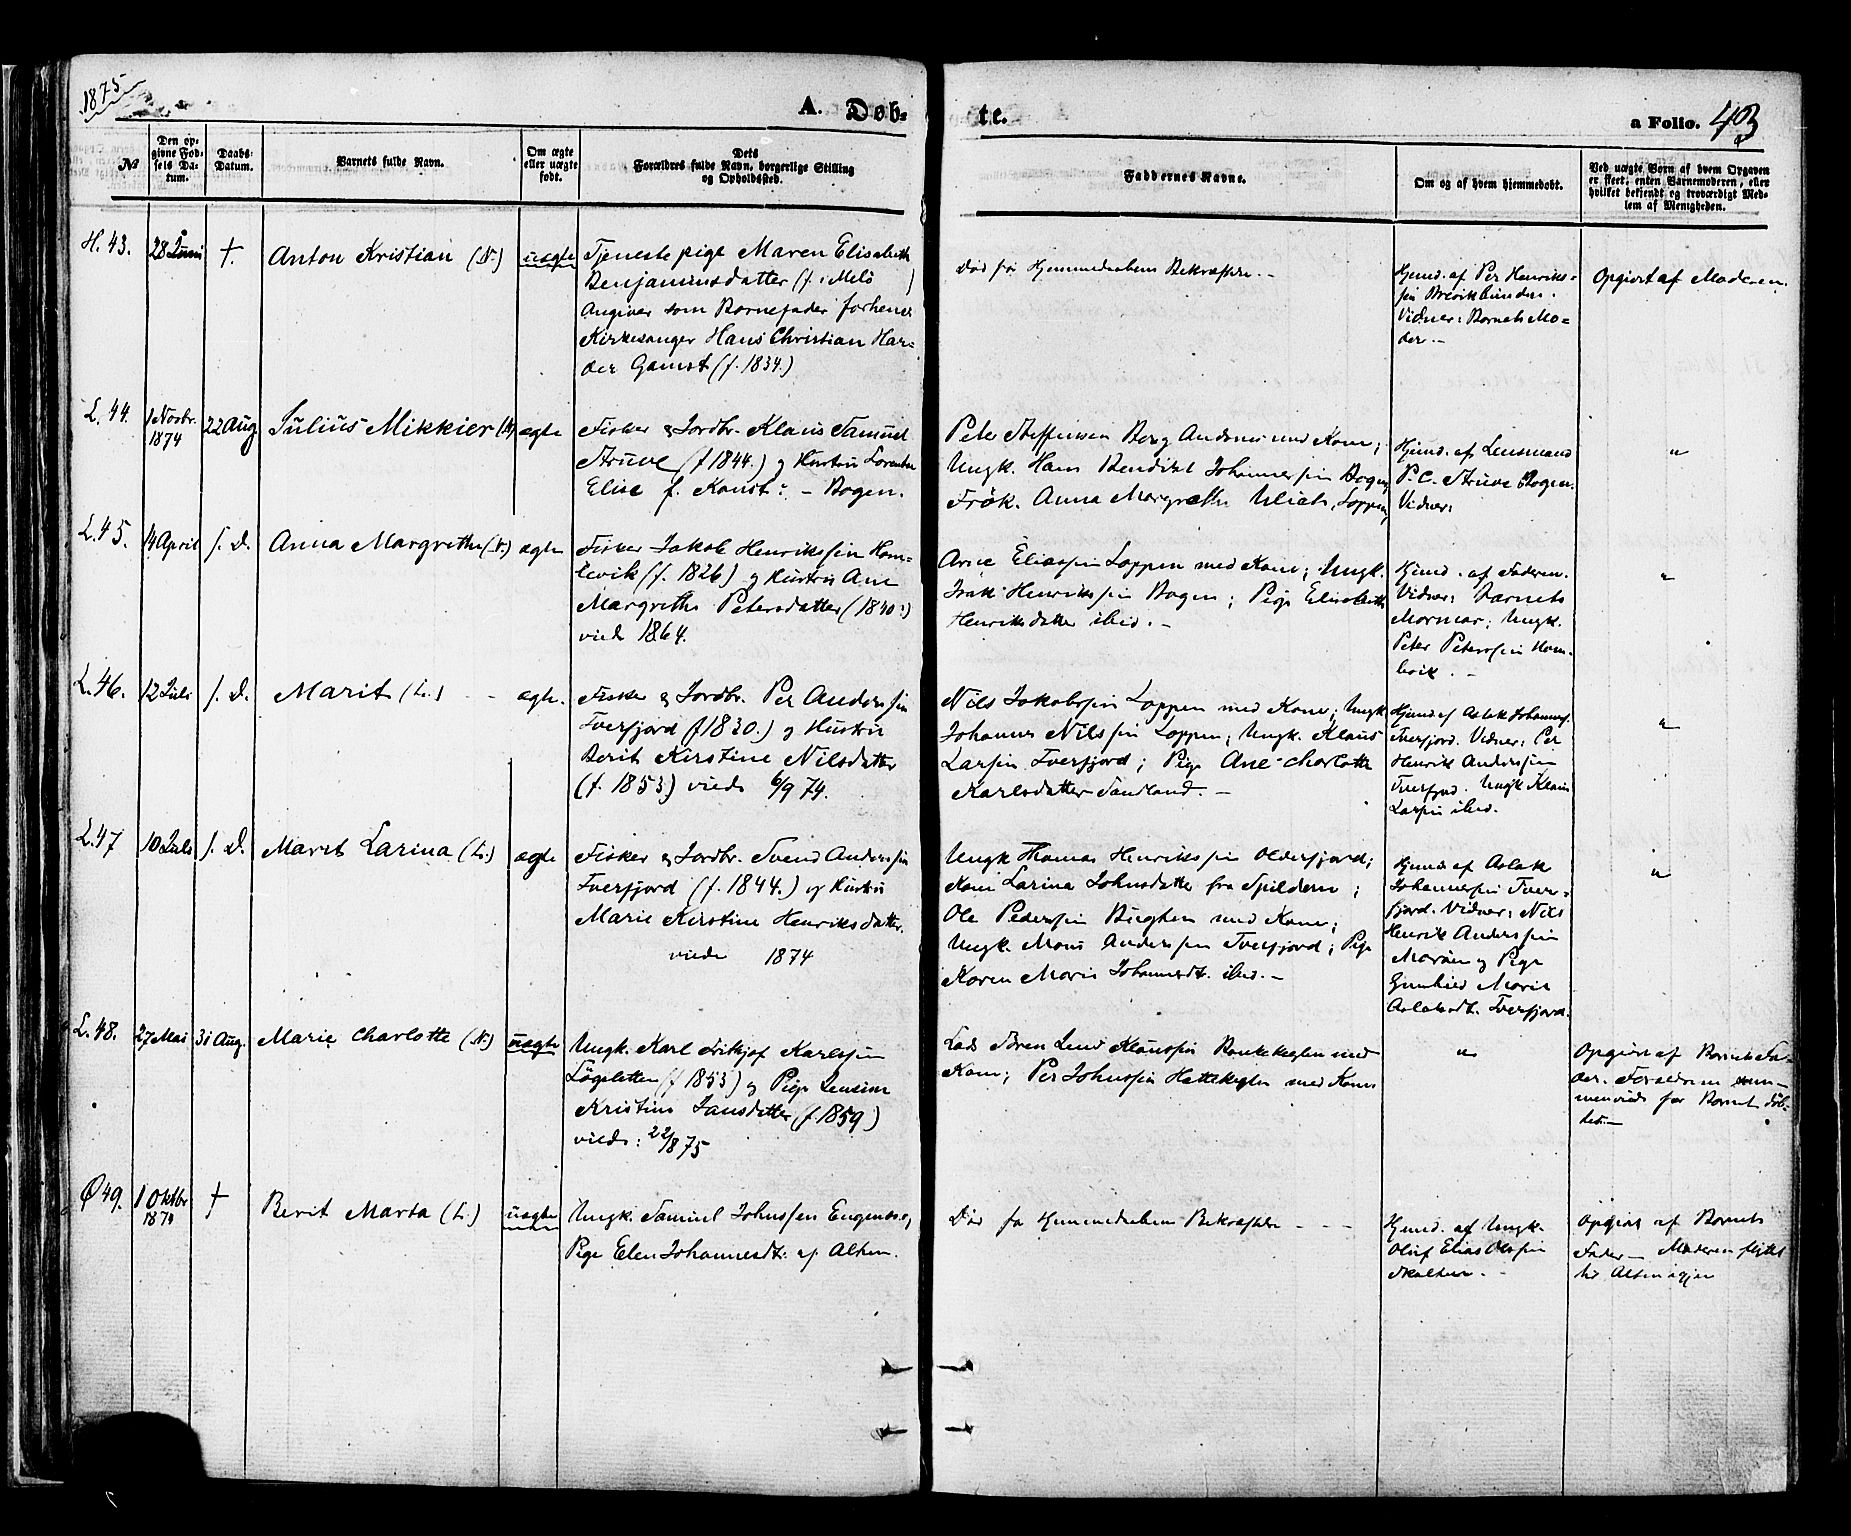 1875
A. Døb-
te.
a Folio. 43
№
Den op-
givne Fød-
sels Da-
tum.
Daabs-
Datum.
Barnets fulde Navn.
Om ægte
eller uægte
født.
Dets
Forældres fulde Navn, borgerlige Stilling
og Opholdssted.
Faddernes Navne.
Om og af hvem hjemmedøbt.
Ved uægte Børn af hvem Opgaven
er skeet, enten Barnemoderen, eller
hvilket bekjendt og troværdigt Med-
lem af Menigheden.
H. 43.
28 Juni
†.
Anton Kristian (N.)
uægte
Tjenestepige Maren Elisabeth
Benjaminsdatter (f. i Melö )
Angiver som Barnefader forhenv.
Kirkesanger Hans Christian Har-
der Gamst (f. 1834.)
Död før Hjemmedaabens Bekræftelse. -
Hjmd. af Per Henriks-
sen
Vidner: Barnets Mo-
der. -
Opgivet af Moderen.
L. 44.
1 Novbr.
1874
22 Aug
Julius Mikkier (N.)
ægte
Fisker & Jordbr. Klaus Samuel
Struve (f 1844.) og Hustru
Elise f. Konst: - Bogen.
Peter Steffensen Berg Andsnes med Kone;
Ungk. Hans Bendikt Johannessen Bogen
Frøk. Anna Margrethe Ulich, Loppen
Hjmd. af Lensmand
P. C. Struve Bogen.
Vidner:
"
L. 45.
14 April
s. D.
Anna Margrethe (N.)
ægte
Fisker Jakob Henrikssen Ham-
levik (f. 1826) og Hustru Ane
Margrethe Petersdatter (1840?)
viede 1864.
Arne Eliassen Loppen med Kone; Ungk.
Isak Henrikssen Bogen; Pige Elisabeth
Henriksdatter ibid. -
Hjmd. af Faderen.
Vidner: Barnets
Mormor; Ungk.
Peter Peterssen Ham-
levik. -
"
L. 46.
12 Juli
s. D.
Marit (L.) - -
ægte.
Fisker & Jordbr. Per Anderssen
Tverfjord (f 1830.) og Hustru
Berit Kirstine Nilsdatter
(f. 1853) viede 6/9 74.
Nils Jakobssen Loppen med Kone; Ungk
Johannes Nilssen Loppen; Ungk. Klaus
Larsen Tverfjord; Pige Ane Charlotte
Karlsdatter Sandland. -
Hjmd af Aslak Johannes.
Tverfjord. Vidner: Per
Henrik Anderssen
Tverfjord. Ungk Klaus
Larsen ibid.
"
L. 47
10 Juli
s. D.
Marit Larina (L.)
ægte
Fisker & Jordbr. Svend Anderssen
Tverfjord (f. 1844.) og Hustru
Marie Kirstine Henriksdatter.
viede 1874
Ungk Thomas Henrikssen Oldersfjord;
Kone Larina Johnsdatter fra Spildern;
Ole Pederssen med Kone;
Ungk Mons Anderssen Tverfjord; Pige
Karen Marie Johannesdt. ibid. -
Hjmd af Aslak
Johannessen Tver-
fjord. Vidner: Nils
Henrik Anderssen
og Pige
Gunhild Marie
Aslaksdt. Tverfjord.
"
L. 48.
27 Mai
31 Aug.
Marie Charlotte (N.)
uægte
Ungk. Karl Fritjof Karlssen
Lögsletten (f 1853) og Pige
Kristine Jansdatter (f. 1859)
viede: 22/8 75
Lods Sören Lund Klaussen med
Kone; Per Johnssen med Kone
"
Opgivet af Barnets Fa-
der. Forældrene sam-
menviede før Barnets Döb-
tes. -
Ø 49.
1 Oktbr
1874
†
Berit Marta (L.)
uægte
Ungk. Samuel Johnssen
Pige Elen Johannesdt: af Alten.
Död før Hjemmedaabens Bekræftelse - - -
Hjmd. af Ungk.
Oluf Elias Olssen
Opgivet af Barnets
Fader - Moderen flyttet
til Alten igjen